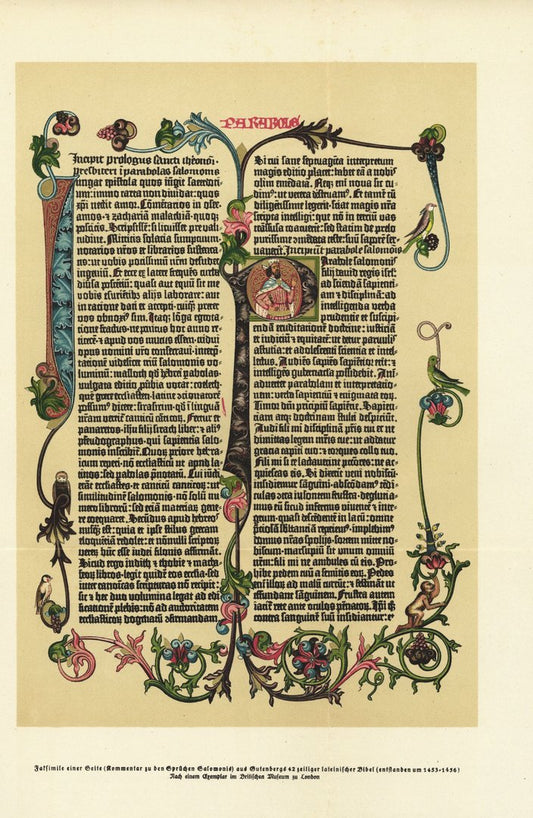 PARABOLE
Incipit prologus sancti iheronimi
presbiteri i parabolas salomonis
Iungat epistola quos iūgit sacerdoci-
um: immo carta non dividat: quos
xp̄i nectit amor. Cōmētarios in osee·
amos· ⁊ zachariā malachiā· quoqȝ
poscitis. Scripsissē: si licuisset pre vali-
tudine. Mittitis solacia sumptuum·
notarios nr̄os et librarios sustenta-
tis: ut vobis potissimū nr̄m desudet
ingeniū. Et ecce ex latere frequēs turba
diūsa poscētiū: quasi aut equū sit me
vobis esuriētibȝ alijs laborare: aut
in ratione dati et accepti· cuiqȝ preter
vos obnoxiꝰ sim. Itaqȝ lōga egrota-
tione fractus· ne penitus hoc anno re-
ticerē· ⁊ apud vos mutus essem· tridui
opus nomini vr̄o consecravi· interp̄-
tationē videlicet triū salomonis vo-
luminū: masloth qd̄ hebrei pabolas·
vulgata editio ꝓūbia vocat: coeleth·
quē grece ecclesiasten· latine ꝯcionatorē
possumꝰ dicere: sirasirim· qd̄ ī linguā
nr̄am vertit̄ canticū cāticoꝝ. Fertur et
panaretos· ihū filij sirach liber: ⁊ aliꝰ
pseudographus· qui sapientia salo-
monis inscribit̄. Quoꝝ priorē hebra-
icum reperi· nō ecclesiasticū ut apud la-
tinos: sed pabolas p̄notatū. Cui iūcti
erāt ecclesiastes· et canticū canticoꝝ: ut
similitudinē salomonis· nō solū nu-
mero librorū: sed etiā materiaꝝ gene-
re coequaret. Secūdus apud hebreos
nusqȝ est: quia et ipse stilus grecam
eloquētiā redolet: et nōnulli scriptoꝝ
veteꝝ hūc esse iudei filonis affirmāt.
Sicut ergo iudith ⁊ thobie ⁊ macha-
beoꝝ libros· legit quidē eos ecclia· sed
inter canoīcas scripturas nō recipit:
sic ⁊ hec duo volumina legat ad edi-
ficationē plebis: nō ad auctoritatem
ecclesiasticoꝝ dogmatū ꝯfirmandam.
Si cui sane septuaginta interpretum
magis editio placet: habet eā a nobis
olim emēdatā. Neqȝ eni nova sic cu-
dimꝰ: ut vetera destruamꝰ. Et tamē cū
diligētissime legerit· sciat magis nr̄a
scripta intelligi: que nō in terciū vas
trāsfusa coacuerit: sed statim de prelo
purissime ꝯmēdata teste: suū sapore ser-
vauerīt. Incipiunt parabole salomōis
Parabole salomonis
filij dauid regis isrl̄:
ad sciendā sapienti-
am ⁊ disciplinā: ad
intelligenda verba
prudentie et suscipi-
endā eruditationē doctrine: iusticiā
et iudiciū ⁊ equitatē: ut detur paruulis
astutia: et adolescenti scientia et intel-
lectus. Audiēs sapiēs sapiētior erit: ⁊
intelligēs gubernacla possidebit. Ani-
aduertet parabolam et interpretatio-
nem: verba sapientiū ⁊ enigmata eoꝝ.
Timor dn̄i principiū sapiētie. Sapien-
tiam atqȝ doctrinam stulti despiciūt.
Audi fili mi disciplinā pr̄is tui et ne
dimittas legem mr̄is tue: ut addatur
gratia capiti tuo: ⁊ torques collo tuo.
Fili mi si te lactauerint pctōres: ne ac-
quiescas eis. Si dixerīt veni nobiscū·
insidiemur sāguini· abscōdamꝰ tēdi-
culas ꝯtra insontem frustra· degluciа-
mus eū sicud infernus viuentē ⁊ inte-
grum· quasi descēdentē in lacū: omnē
p̄ciosā substantiā reperiemꝰ· implebimꝰ
domus nr̄as spolijs· sortem mitte no-
biscum· marsupiū sit unum omniū
nr̄m: fili mi ne ambules cū eis. Pro-
hibe pedem tuū a semitis eoꝝ. Pedes
eni illoꝝ ad malū currūt: ⁊ festināt ut
effundant sāguinem. Frustra autem
iacit̄ rete ante oculos pēnatoꝝ. Ipi qȝ
contra sanguinē suū insidiantur: et
Faksimile einer Seite (Kommentar zu den Sprüchen Salomonis) aus Gutenbergs 42 zeiliger lateinischer Bibel (entstanden um 1453-1456)
Nach einem Exemplar im Britischen Museum zu London